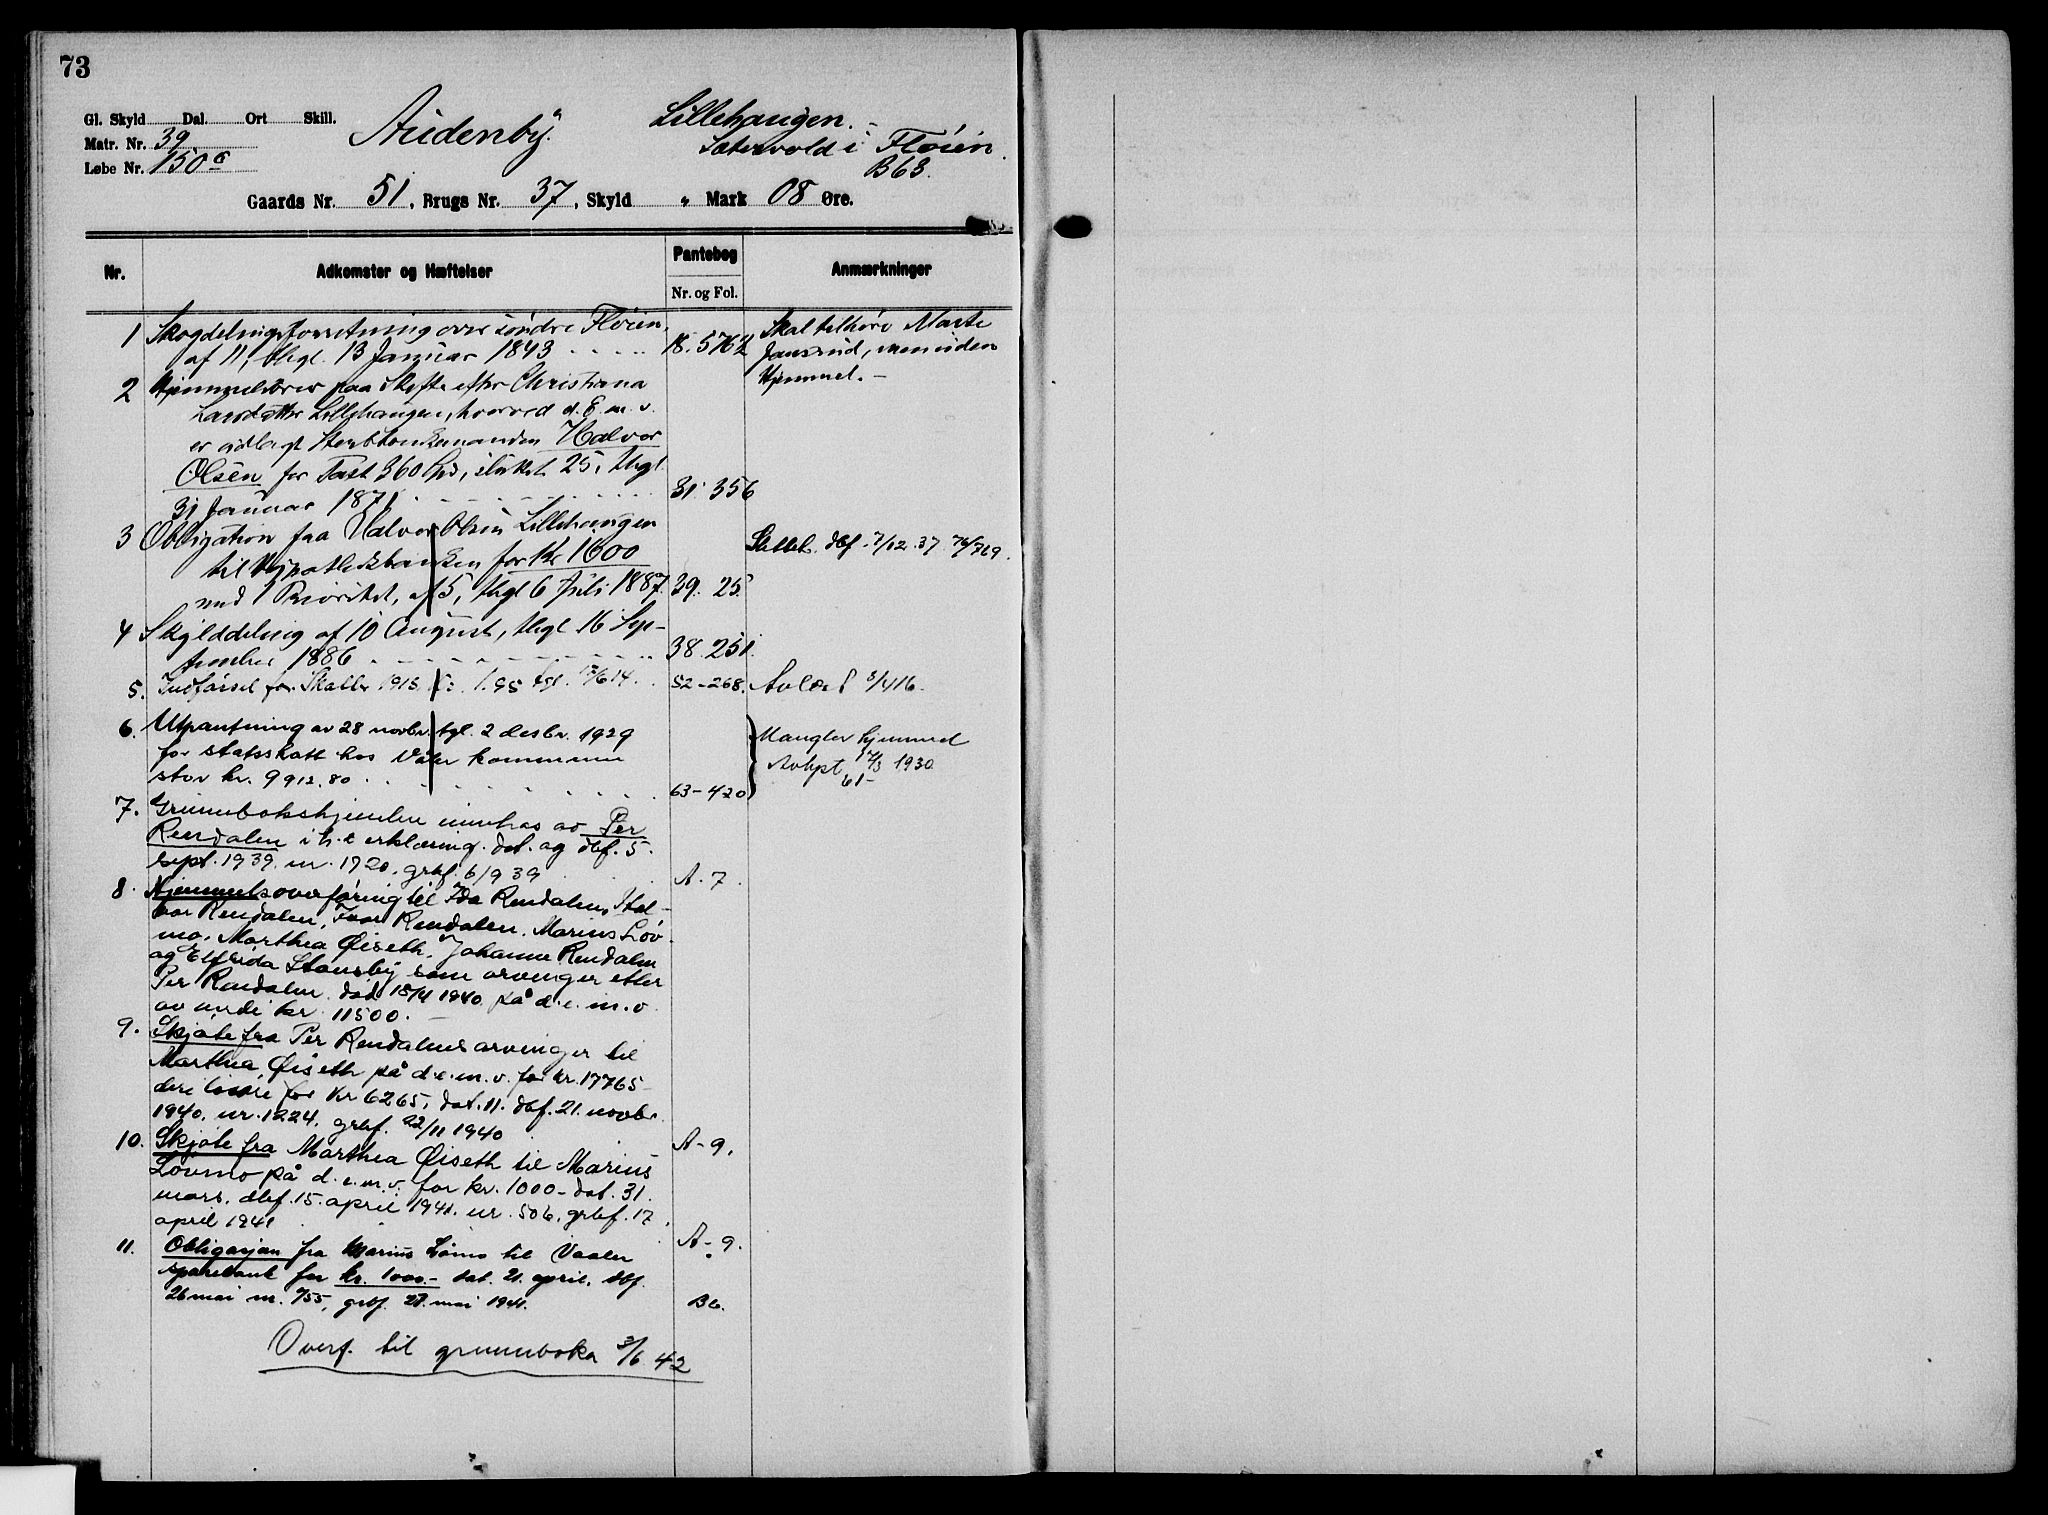 73
Gl. Skyld Dal. Ort Skill.
Matr. Nr. 39
Løbe Nr. 150 c
Audenby.
Lillehaugen. –
Sætervold i Fløien.
B 68.
Gaards Nr. 51, Brugs Nr. 37, Skyld „ Mark 08 Øre.
Nr. Adkomster og Hæftelser Pantebog Anmærkninger
Nr. og Fol.
1 Skogdelingsforretning over søndre Fløien,
af 11, thgl. 13 Januar 1843 18. 576
Skal tilhøre Marte
Jansrud, men uden
Hjemmel. –
2 Hjemmelsbrev paa Skifte efter Christiana
Larsdatter Lillehaugen, hvorved d. E. m. v.
er udlagt Sterbboenkemanden Halvor
Olsen for Taxt 360 Spd, 25, thgl
31 Januar 1871 31 356
3 Obligation fra Halvor Olsen Lillehaugen
til Hypothekbanken for Kr 1600
med 1 Prioritet, af 5, thgl 6 Juli 1887. 39. 25.
Slettet. dbf. 7/12. 37. 76/769.
4 Skylddeling af 10 August, thgl 16 Sep-
tember 1886 38. 251.
5. Indførsel for Skatter 1913. Kr. 1.95 tgl. 17/6 14. 52–268. Avlæst 3/4 16.
6. Utpantning av 28 novbr. tgl. 2 desbr. 1929
for statsskatt hos Våler kommune
stor kr. 9912.80 63–420
Mangler hjemmel
Avlyst 14/3 1930
7. Grunnbokshjemlen innehas av Per
Rendalen i h.t. erklæring. dat. og dbf. 5.
sept. 1939. nr. 1720, grbf. 6/9 39 A. 7.
8. Hjemmelsoverføring til Ida Rendalen, Hal-
vor Rendalen, Ivar Rendalen, Marius Løv-
mo, Marthea Øiseth, Johanne Rendalen
og Elfrida Stansby som arvinger etter
Per Rendalen. dat 15/4 1940 på d.e.m.v
av verdi kr. 11500. –
9. Skjøte fra Per Rendalens arvinger til
Marthea Øiseth på d.e.m.v. for kr. 17765
deri løsøre for kr 6265, dat. 11. dbf. 21. novbr.
1940. nr. 1224, grbf. 22/11 1940
10. Skjøte fra Marthea Øiseth til Marius A – 9.
Løvmo på d.e.m.v. for kr. 1000 – dat. 31.
mars. dbf. 15. april 1941. nr. 506, grbf. 17.
april 1941 A – 9.
11. Obligasjon fra Marius Lømo til Vaaler
sparebank for kr. 1000.– dat. 21. april, dbf.
26 mai nr. 755, grbf. 27. mai 1941. B 6.
Overf. til grunnboka 3/6 42